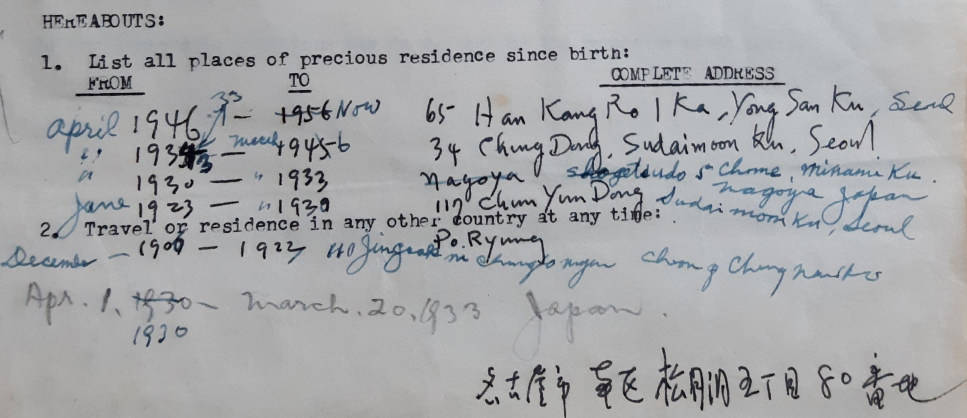 HEREABOUTS:
1. List all places of precious residence since birth:
FROM TO COMPLETE ADDRESS
April 1946 — 1956 Now 65 Han Kang Ro 1 Ka, Yong San Ku, Seoul
" 193 — March 1945 6 34 Chung Dong, Sudaimoon Ku, Seoul
" 1930 — " 1933 Nagoya 5 Chome, Minami Ku.
Nagoya Japan
June 1923 — " 1930 117 Chun Yun Dong Sudaimoon Ku, Seoul
2. Travel or residence in any other country at any time:
Po Ryung
December — 190 — 1922 110
Apr. 1, 1930 — March. 20, 1933 Japan.
1930
名古屋市 南区 松月洞 五丁目 80 番地